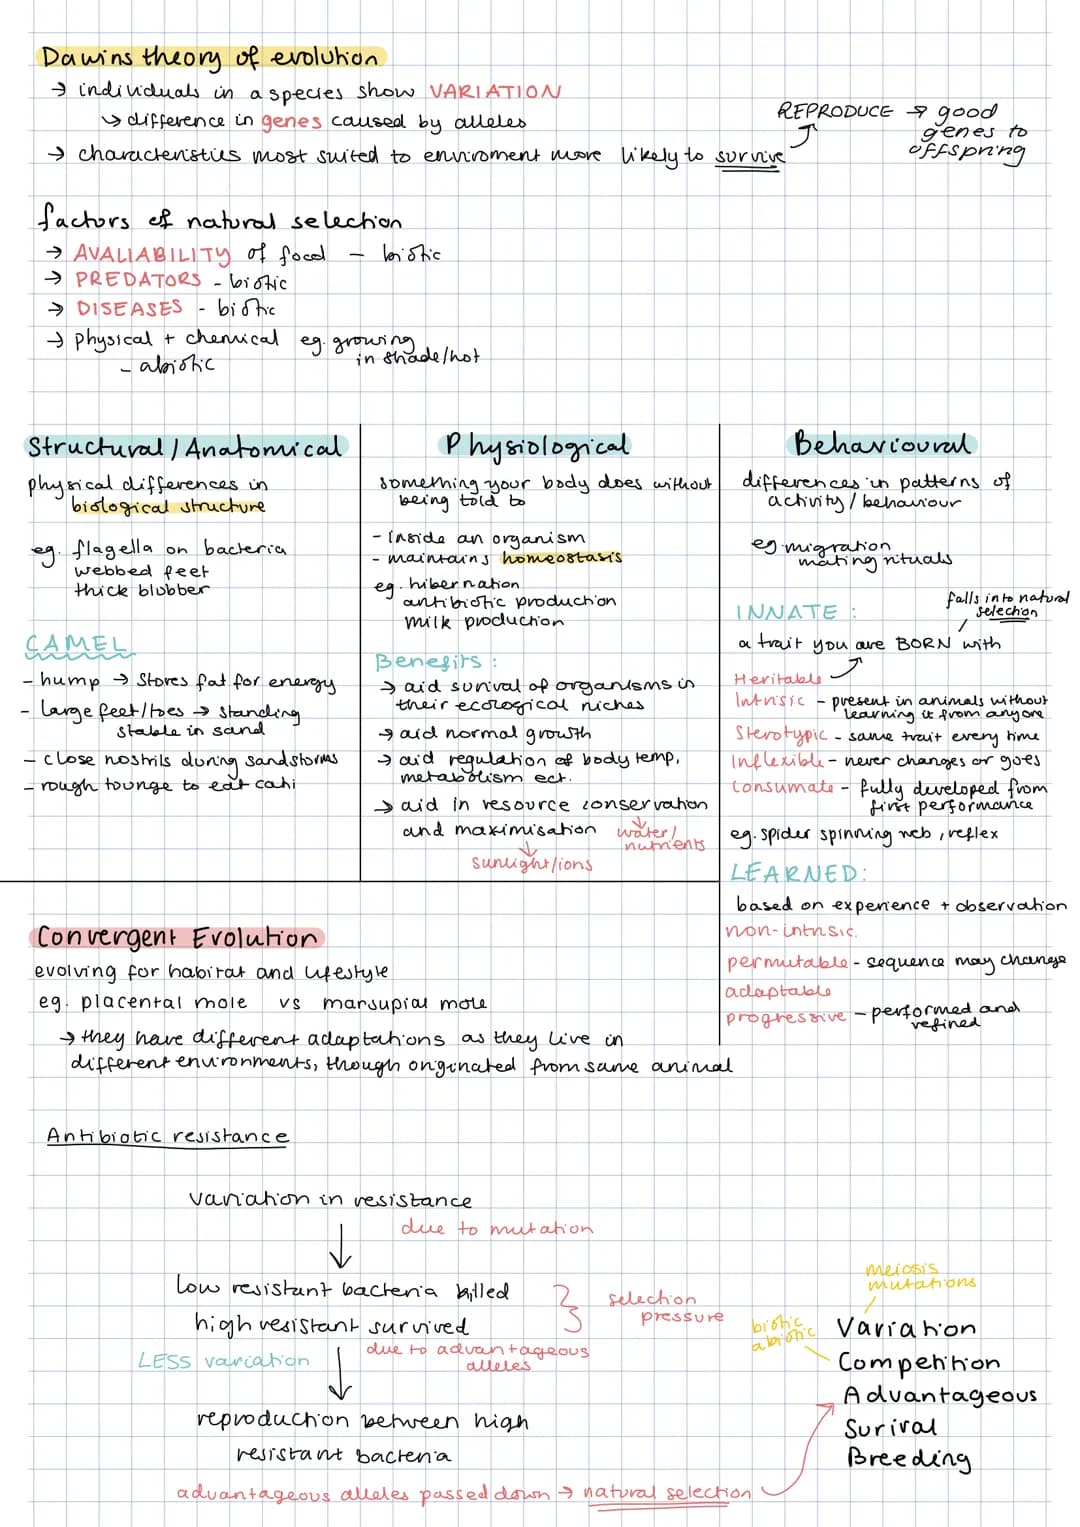 Dawins theory of evolution
→ individuals in a species show VARIATION
↳ difference in genes caused by alleles
→ characteristics most suited to enviroment more likely to survive
REPRODUCE → good
genes to
offspring
factors of natural selection
→ AVALIABILITY of food - biotic
→ PREDATORS - biotic
→ DISEASES - biotic
→ physical + chemical eg. growing
in shade/hot
- abiotic
Structural / Anatomical
physical differences in
biological structure
eg. flagella on bacteria
webbed feet
thick blubber
CAMEL
- hump → stores fat for energy
- large feet/toes → standing
stable in sand
- close nostrils during sandstorms
- rough tounge to eat cati
Physiological
something your body does without
being told to
- inside an organism
- maintains homeostasis
eg. hibernation
antibiotic production
milk production
Benefits :
→ aid surival of organisms in
their ecological niches
→ aid normal growth
→ aid regulation of body temp,
metabolism ect.
→ aid in resource conservation
and maximisation
water/
nutrients
sunlight/ions
Behavioural
differences in patterns of
activity / behaviour
eg migration
mating rituals
INNATE :
falls into natural
selection
a trait you are BORN with
Heritable
Intrisic - present in animals without
learning it from anyone
Sterotypic - same trait every time
Inflexible - never changes or goes
Consumate - fully developed from
first performance
eg. spider spinning web, reflex
LEARNED:
based on experience + observation
non-intrisic.
permutable - sequence may change
adaptable
progressive - performed and
refined
Convergent Evolution
evolving for habitat and lifestyle
eg. placental mole vs marsupial mole
→ they have different adaptations as they live in
different environments, though originated from same animal
Antibiotic resistance
variation in resistance
due to mutation
low resistant bacteria killed
high resistant survived
selection
pressure
LESS variation
due to advantageous
alleles
reproduction between high
resistant bacteria
advantageous alleles passed down → natural selection
meiosis
mutations
biotic
abiotic
Variation
Competition
Advantageous
Surival
Breeding